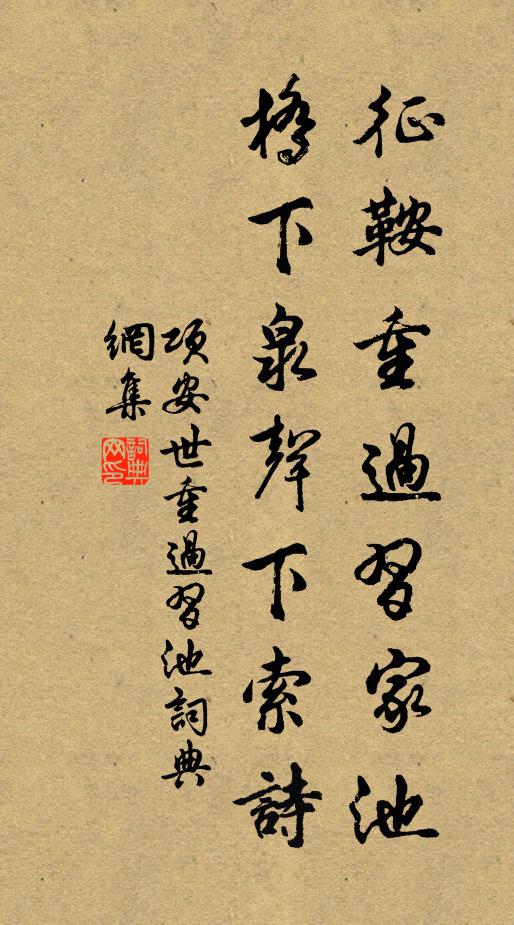 征鞍重過習家池
橋下泉聲下索詩
項安世重過習池詞典
網集
詞典
网印